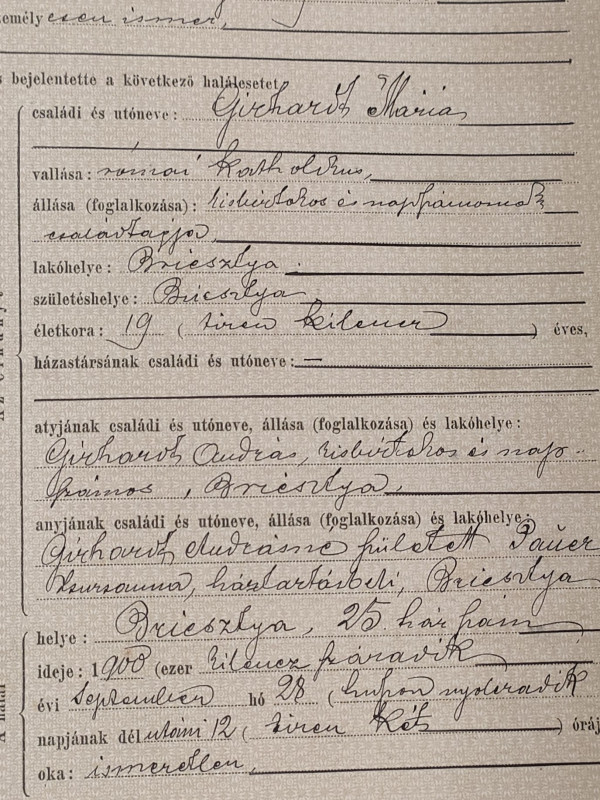 személy esen ismer,
s bejelentette a következő halálesetet
családi és utóneve: Girhardt Mária
vallása: római katholikus,
állása (foglalkozása): kisbirtokos és napszámosnak
családtagja,
lakóhelye: Briesztya
születéshelye: Briesztya
életkora: 19 (tizen kilencz) éves,
házastársának családi és utóneve: —
atyjának családi és utóneve, állása (foglalkozása) és lakóhelye:
Girhardt András, kisbirtokos és nap-
számos, Briesztya,
anyjának családi és utóneve, állása (foglalkozása) és lakóhelye:
Girhardt Andrásné született Pauer
Zsuzsanna, háztartásbeli, Briesztya
helye: Briesztya, 25. ház szám
ideje: 1900 (ezer kilencz századik
évi September hó 28 (huszon nyolczadik
napjának délutáni 12 (tizen két) óráj
oka: ismeretlen,